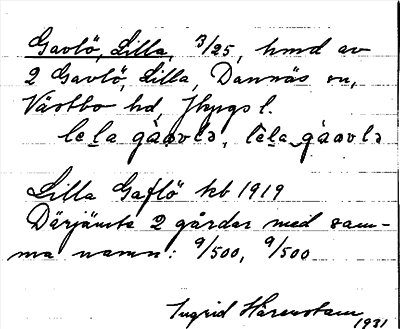 Gavlö, Lilla, 3/25, hmd av
2 Gavlö, Lilla, Dannäs sn,
Västbo hd, Jkpgs l.
lela gåavlə, lela gåavlə
Lilla Gaflö kb 1919
Därjämte 2 gårdar med sam-
ma namn: 9/500, 9/500
Ingrid Härenstam
1931